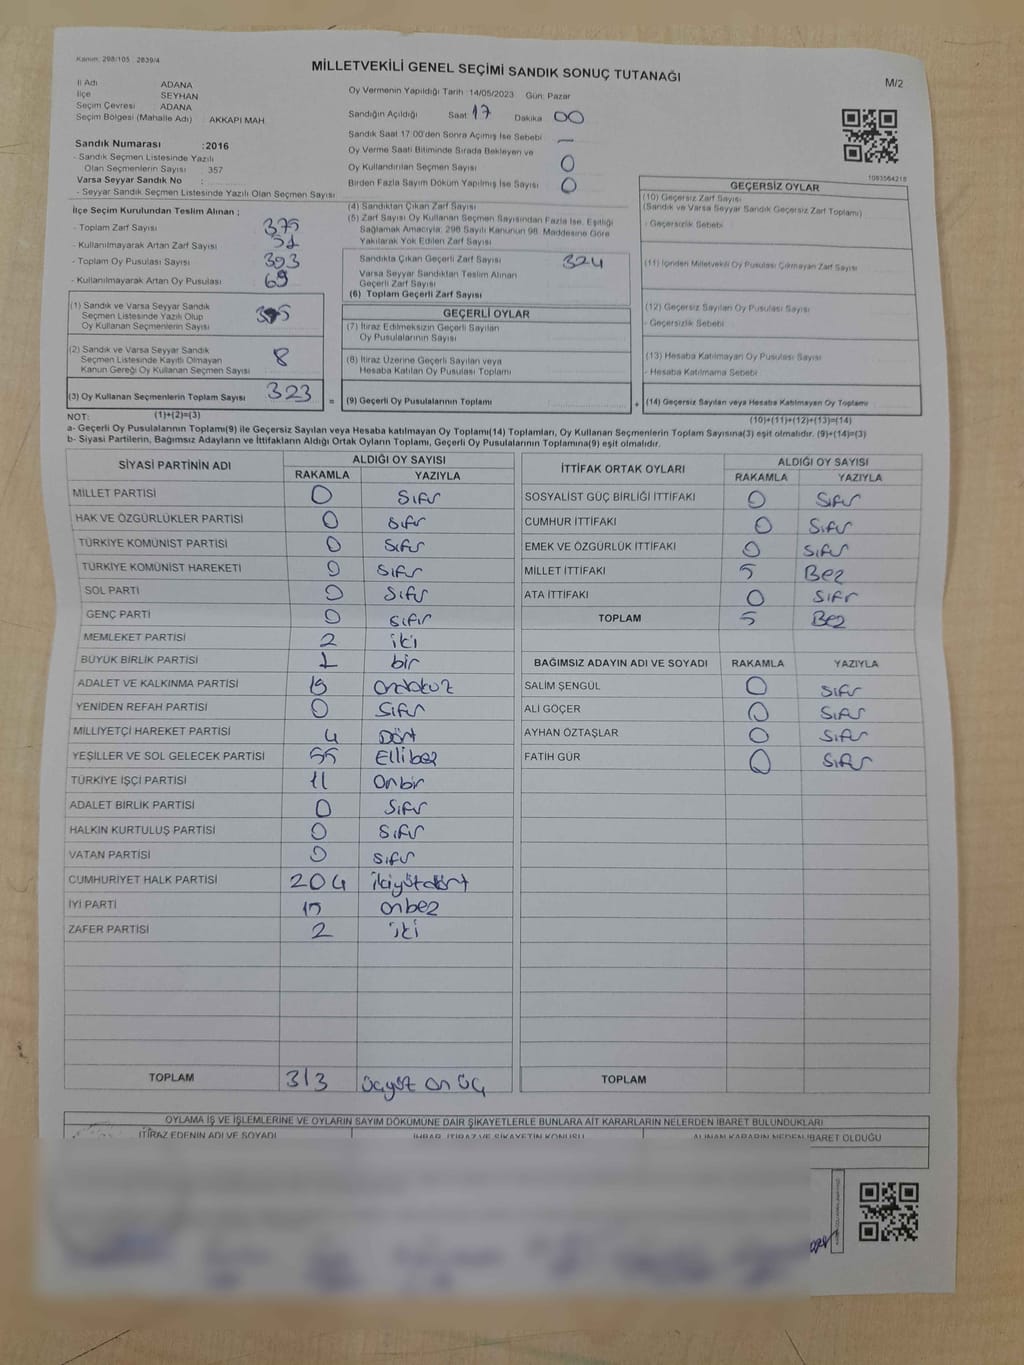 Kanun: 298/105 2839/4
MİLLETVEKİLİ GENEL SEÇİMİ SANDIK SONUÇ TUTANAĞI
M/2
İl Adı ADANA
İlçe SEYHAN
Seçim Çevresi : ADANA
Seçim Bölgesi (Mahalle Adı) : AKKAPI MAH.
Oy Vermenin Yapıldığı Tarih :14/05/2023 Gün: Pazar
Sandığın Açıldığı Saat 17 Dakika 00
Sandık Saat 17.00'den Sonra Açılmış İse Sebebi –
Oy Verme Saati Bitiminde Sırada Bekleyen ve
Oy Kullandırılan Seçmen Sayısı 0
Birden Fazla Sayım Döküm Yapılmış İse Sayısı 0
Sandık Numarası :2016
- Sandık Seçmen Listesinde Yazılı
Olan Seçmenlerin Sayısı : 357
Varsa Seyyar Sandık No :
- Seyyar Sandık Seçmen Listesinde Yazılı Olan Seçmen Sayısı
1093564218
İlçe Seçim Kurulundan Teslim Alınan ;
- Toplam Zarf Sayısı 375
- Kullanılmayarak Artan Zarf Sayısı 51
- Toplam Oy Pusulası Sayısı 393
- Kullanılmayarak Artan Oy Pusulası 69
(1) Sandık ve Varsa Seyyar Sandık
Seçmen Listesinde Yazılı Olup
Oy Kullanan Seçmenlerin Sayısı
(2) Sandık ve Varsa Seyyar Sandık
Seçmen Listesinde Kayıtlı Olmayan
Kanun Gereği Oy Kullanan Seçmen Sayısı 8
(3) Oy Kullanan Seçmenlerin Toplam Sayısı 323
(4) Sandıktan Çıkan Zarf Sayısı
(5) Zarf Sayısı Oy Kullanan Seçmen Sayısından Fazla İse, Eşitliği
Sağlamak Amacıyla, 298 Sayılı Kanunun 98. Maddesine Göre
Yakılarak Yok Edilen Zarf Sayısı
Sandıkta Çıkan Geçerli Zarf Sayısı 324
Varsa Seyyar Sandıktan Teslim Alınan
Geçerli Zarf Sayısı
(6) Toplam Geçerli Zarf Sayısı
GEÇERLİ OYLAR
(7) İtiraz Edilmeksizin Geçerli Sayılan
Oy Pusulalarının Sayısı
(8) İtiraz Üzerine Geçerli Sayılan veya
Hesaba Katılan Oy Pusulası Toplamı
= (9) Geçerli Oy Pusulalarının Toplamı
GEÇERSİZ OYLAR
(10) Geçersiz Zarf Sayısı
(Sandık ve Varsa Seyyar Sandık Geçersiz Zarf Toplamı)
- Geçersizlik Sebebi
(11) İçinden Milletvekili Oy Pusulası Çıkmayan Zarf Sayısı
(12) Geçersiz Sayılan Oy Pusulası Sayısı
- Geçersizlik Sebebi
(13) Hesaba Katılmayan Oy Pusulası Sayısı
- Hesaba Katılmama Sebebi
+ (14) Geçersiz Sayılan veya Hesaba Katılmayan Oy Toplamı
NOT: (1)+(2)=(3) (10)+(11)+(12)+(13)=(14)
a- Geçerli Oy Pusulalarının Toplamı(9) ile Geçersiz Sayılan veya Hesaba katılmayan Oy Toplamı(14) Toplamları, Oy Kullanan Seçmenlerin Toplam Sayısına(3) eşit olmalıdır. (9)+(14)=(3)
b- Siyasi Partilerin, Bağımsız Adayların ve İttifakların Aldığı Ortak Oyların Toplamı, Geçerli Oy Pusulalarının Toplamına(9) eşit olmalıdır.
SİYASİ PARTİNİN ADI ALDIĞI OY SAYISI
RAKAMLA YAZIYLA
MİLLET PARTİSİ 0 Sıfır
HAK VE ÖZGÜRLÜKLER PARTİSİ 0 Sıfır
TÜRKİYE KOMÜNİST PARTİSİ 0 Sıfır
TÜRKİYE KOMÜNİST HAREKETİ 0 Sıfır
SOL PARTİ 0 Sıfır
GENÇ PARTİ 0 Sıfır
MEMLEKET PARTİSİ 2 iki
BÜYÜK BİRLİK PARTİSİ 1 bir
ADALET VE KALKINMA PARTİSİ 19 ondokuz
YENİDEN REFAH PARTİSİ 0 Sıfır
MİLLİYETÇİ HAREKET PARTİSİ 4 Dört
YEŞİLLER VE SOL GELECEK PARTİSİ 55 Ellibeş
TÜRKİYE İŞÇİ PARTİSİ 11 Onbir
ADALET BİRLİK PARTİSİ 0 Sıfır
HALKIN KURTULUŞ PARTİSİ 0 Sıfır
VATAN PARTİSİ 0 Sıfır
CUMHURİYET HALK PARTİSİ 204 ikiyüzdört
İYİ PARTİ 15 onbeş
ZAFER PARTİSİ 2 iki
TOPLAM 313 üçyüz on üç
İTTİFAK ORTAK OYLARI ALDIĞI OY SAYISI
RAKAMLA YAZIYLA
SOSYALİST GÜÇ BİRLİĞİ İTTİFAKI 0 Sıfır
CUMHUR İTTİFAKI 0 Sıfır
EMEK VE ÖZGÜRLÜK İTTİFAKI 0 Sıfır
MİLLET İTTİFAKI 5 Beş
ATA İTTİFAKI 0 Sıfır
TOPLAM 5 Beş
BAĞIMSIZ ADAYIN ADI VE SOYADI RAKAMLA YAZIYLA
SALİM ŞENGÜL 0 Sıfır
ALİ GÖÇER 0 Sıfır
AYHAN ÖZTAŞLAR 0 Sıfır
FATİH GÜR 0 Sıfır
TOPLAM
OYLAMA İŞ VE İŞLEMLERİNE VE OYLARIN SAYIM DÖKÜMÜNE DAİR ŞİKAYETLERLE BUNLARA AİT KARARLARIN NELERDEN İBARET BULUNDUKLARI
İTİRAZ EDENİN ADI VE SOYADI İHBAR, İTİRAZ VE ŞİKAYETİN KONUSU ALINAN KARARIN NEDEN İBARET OLDUĞU